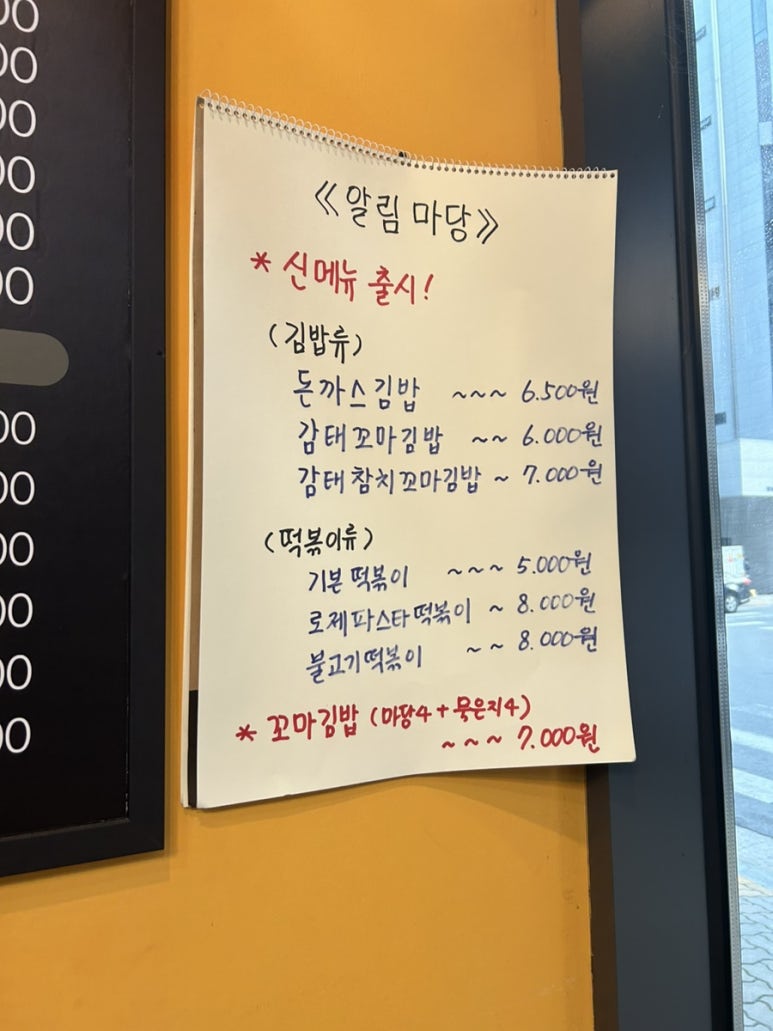 ≪알림 마당≫
* 신메뉴 출시!
(김밥류)
돈까스김밥 ~~~ 6.500원
감태꼬마김밥 ~~ 6.000원
감태참치꼬마김밥 ~ 7.000원
(떡볶이류)
기본떡볶이 ~~~ 5.000원
로제파스타떡볶이 ~ 8.000원
불고기떡볶이 ~~ 8.000원
* 꼬마김밥 (마당4+묵은지4)
~~~ 7.000원